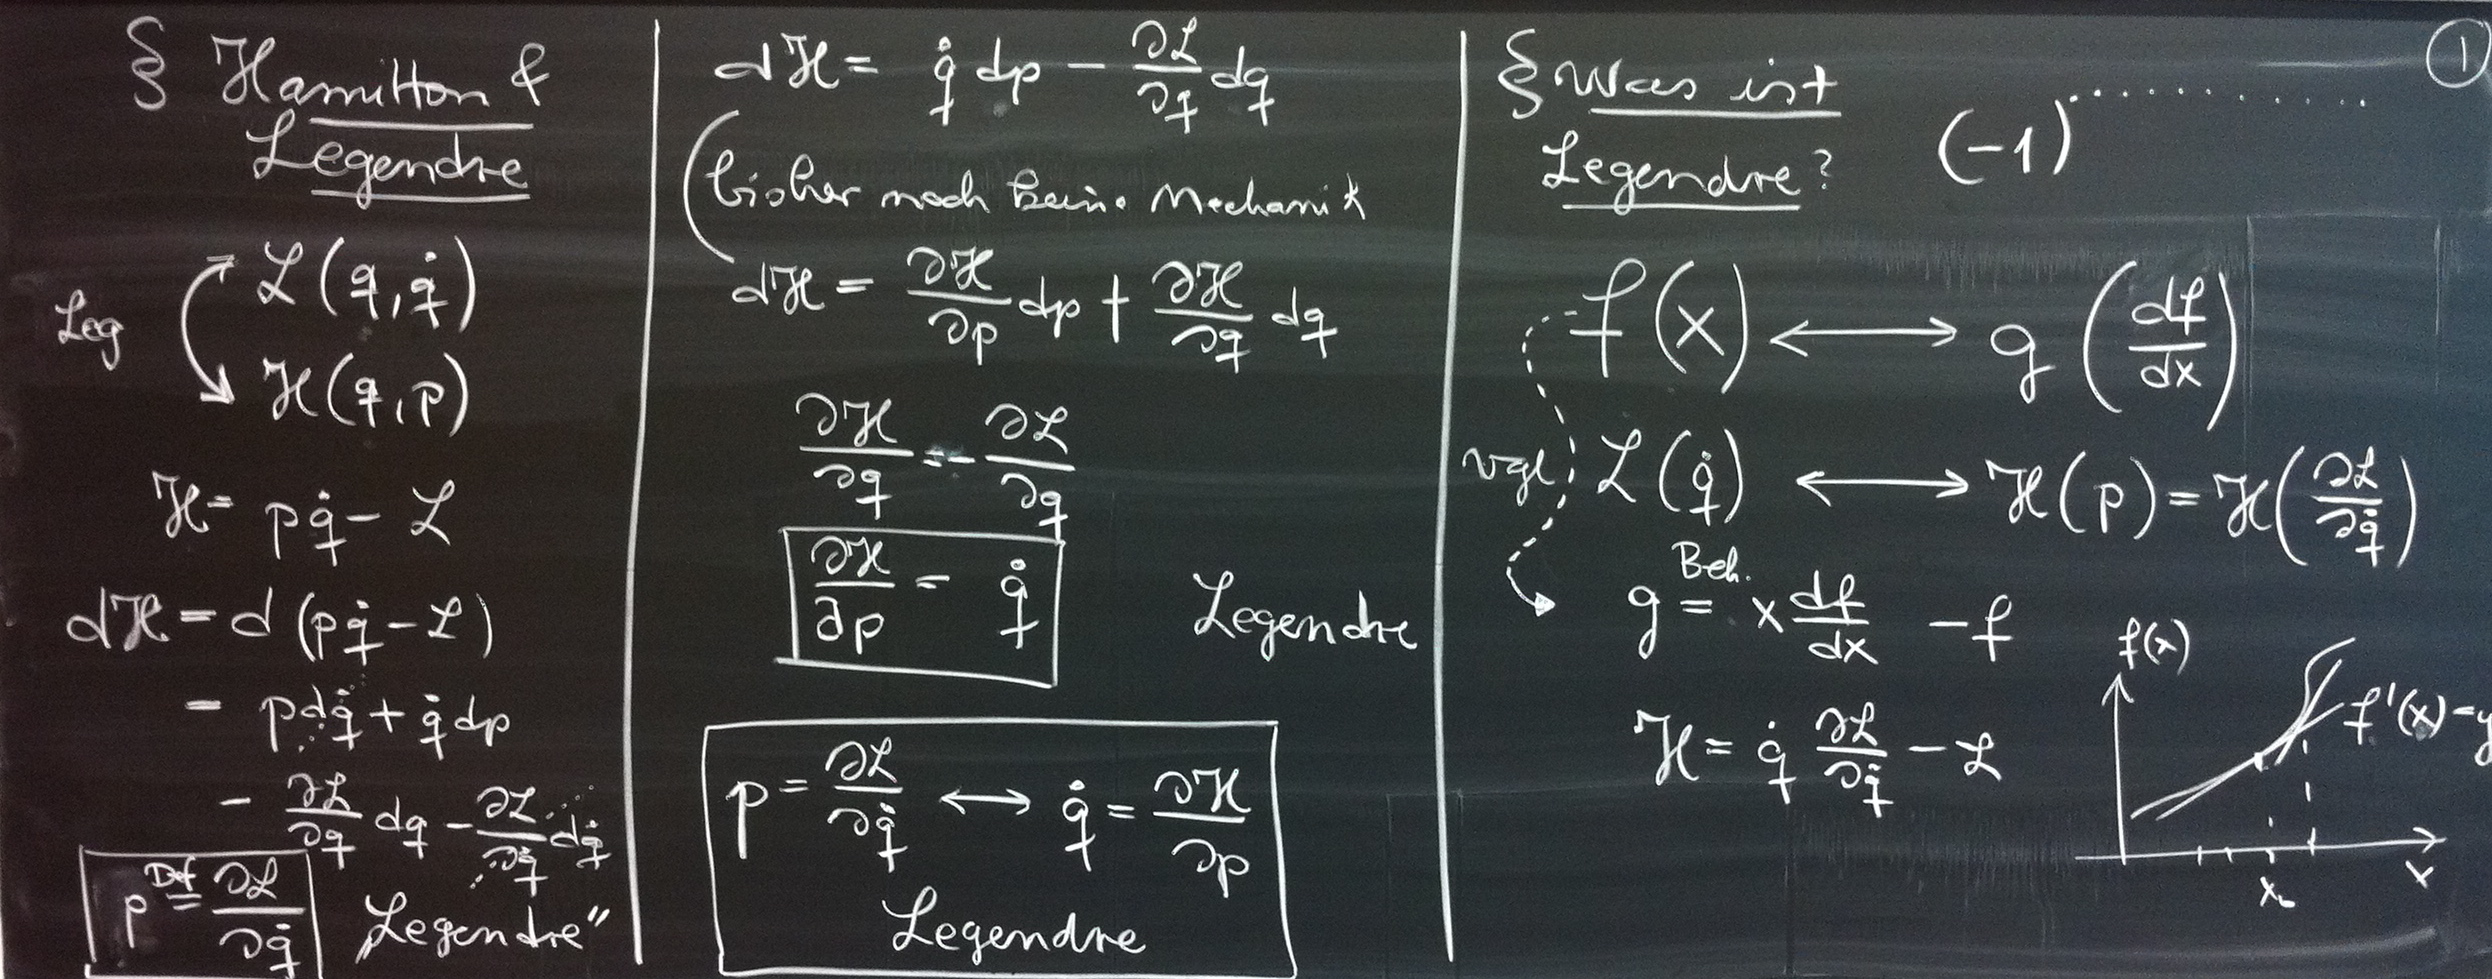 § Hamilton &
Legendre
Leg
ℒ(q, q̇)
ℋ(q, p)
ℋ = pq̇ - ℒ
dℋ = d(pq̇ - ℒ)
= pdq̇ + q̇dp
- ∂ℒ/∂q dq - ∂ℒ/∂q̇ dq̇
p Def= ∂ℒ/∂q̇
„Legendre"
dℋ = q̇ dp - ∂ℒ/∂q dq
bisher noch keine Mechanik
dℋ = ∂ℋ/∂p dp + ∂ℋ/∂q dq
∂ℋ/∂q = - ∂ℒ/∂q
∂ℋ/∂p = q̇
Legendre
p = ∂ℒ/∂q̇ ↔ q̇ = ∂ℋ/∂p
Legendre
①
§ Was ist
Legendre?
(-1)············
f(x) ↔ g(df/dx)
vgl ℒ(q̇) ↔ ℋ(p) = ℋ(∂ℒ/∂q̇)
Beh.
g = x df/dx - f
ℋ = q̇ ∂ℒ/∂q̇ - ℒ
f(x)
f'(x) = y
x